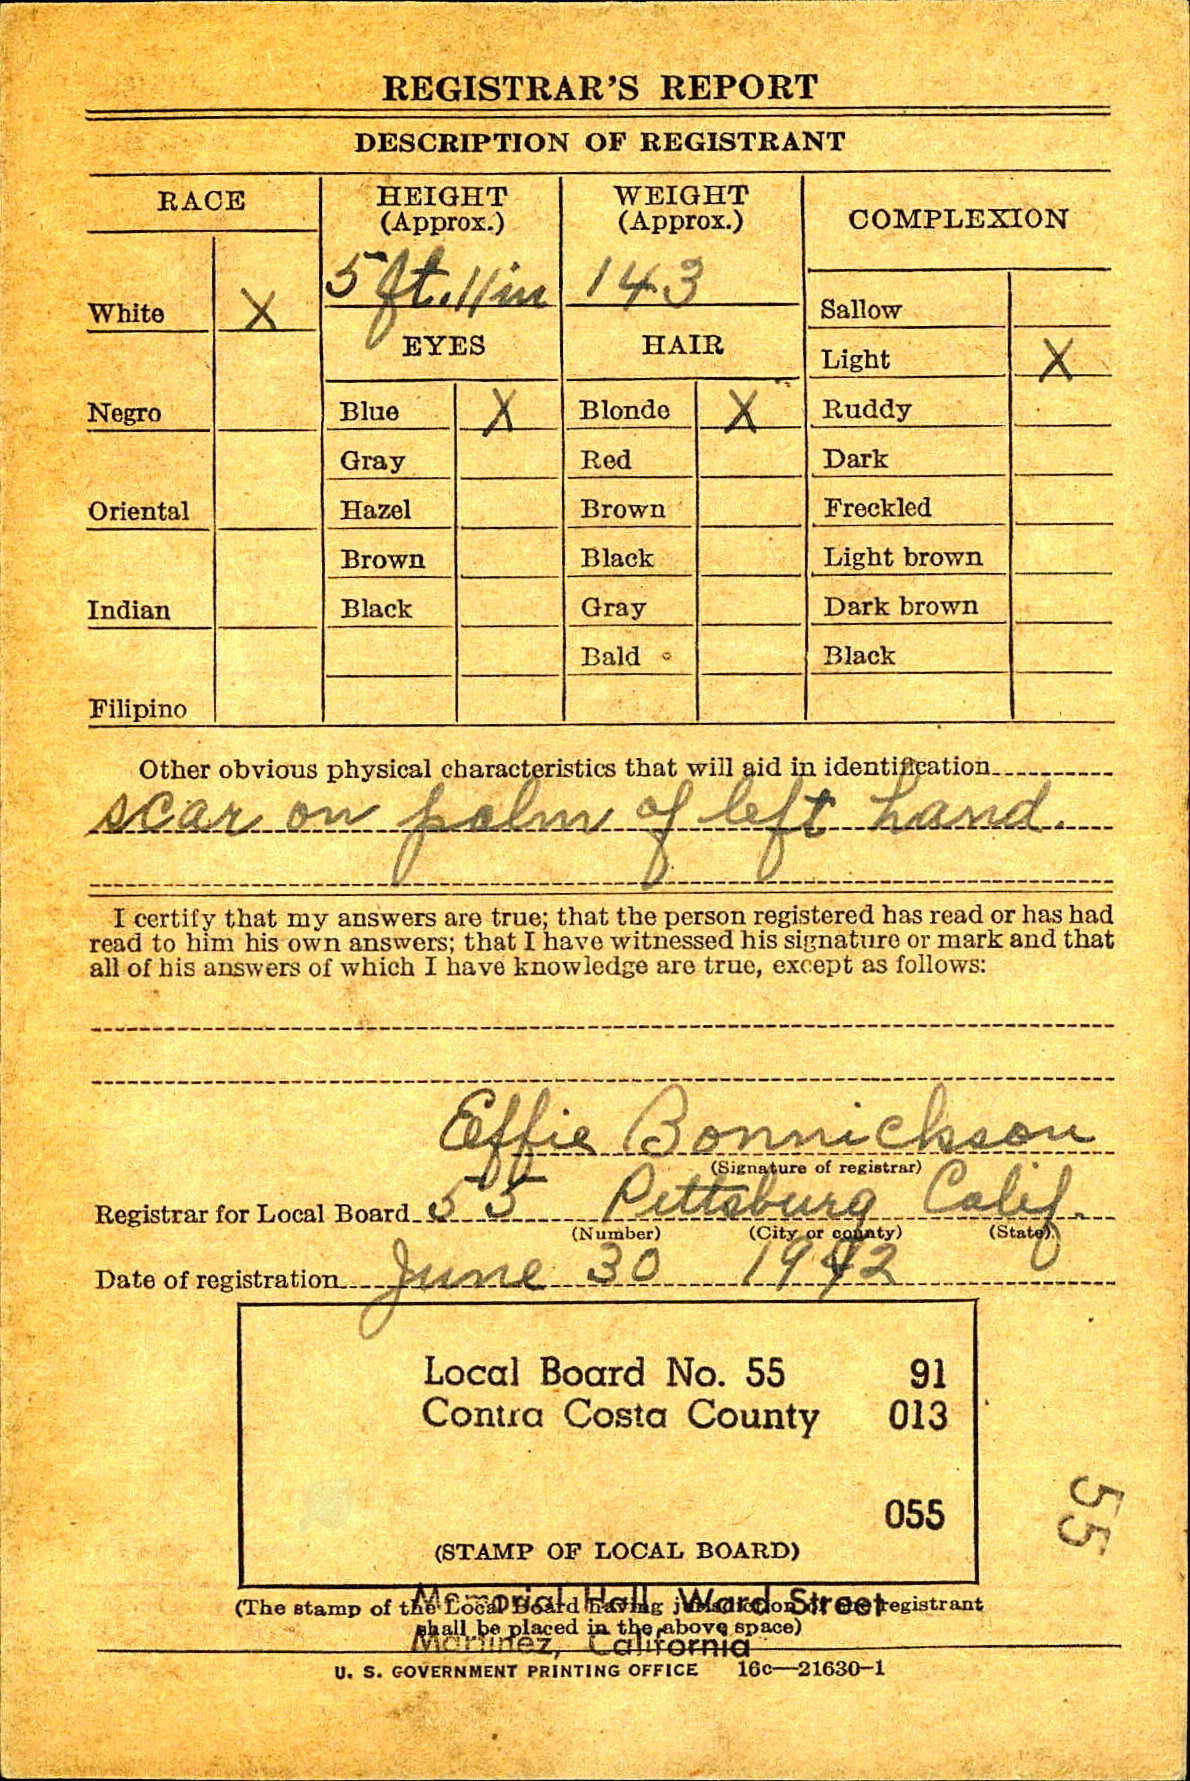 REGISTRAR'S REPORT
DESCRIPTION OF REGISTRANT
RACE
HEIGHT
(Approx.)
WEIGHT
(Approx.)
COMPLEXION
5 ft. 11 in
143
White X
Sallow
EYES
HAIR
Light X
Negro
Blue X
Blonde X
Ruddy
Gray
Red
Dark
Oriental
Hazel
Brown
Freckled
Brown
Black
Light brown
Indian
Black
Gray
Dark brown
Bald
Black
Filipino
Other obvious physical characteristics that will aid in identification
scar on palm of left hand.
I certify that my answers are true; that the person registered has read or has had
read to him his own answers; that I have witnessed his signature or mark and that
all of his answers of which I have knowledge are true, except as follows:
Effie Bonnickson
(Signature of registrar)
Registrar for Local Board 55 Pittsburg Calif.
(Number) (City or county) (State)
Date of registration June 30 1942
Local Board No. 55 91
Contra Costa County 013
055
55
(STAMP OF LOCAL BOARD)
Memorial Hall, Ward Street
(The stamp of the Local Board having jurisdiction of the registrant
shall be placed in the above space)
Martinez, California
U. S. GOVERNMENT PRINTING OFFICE 16c—21630-1